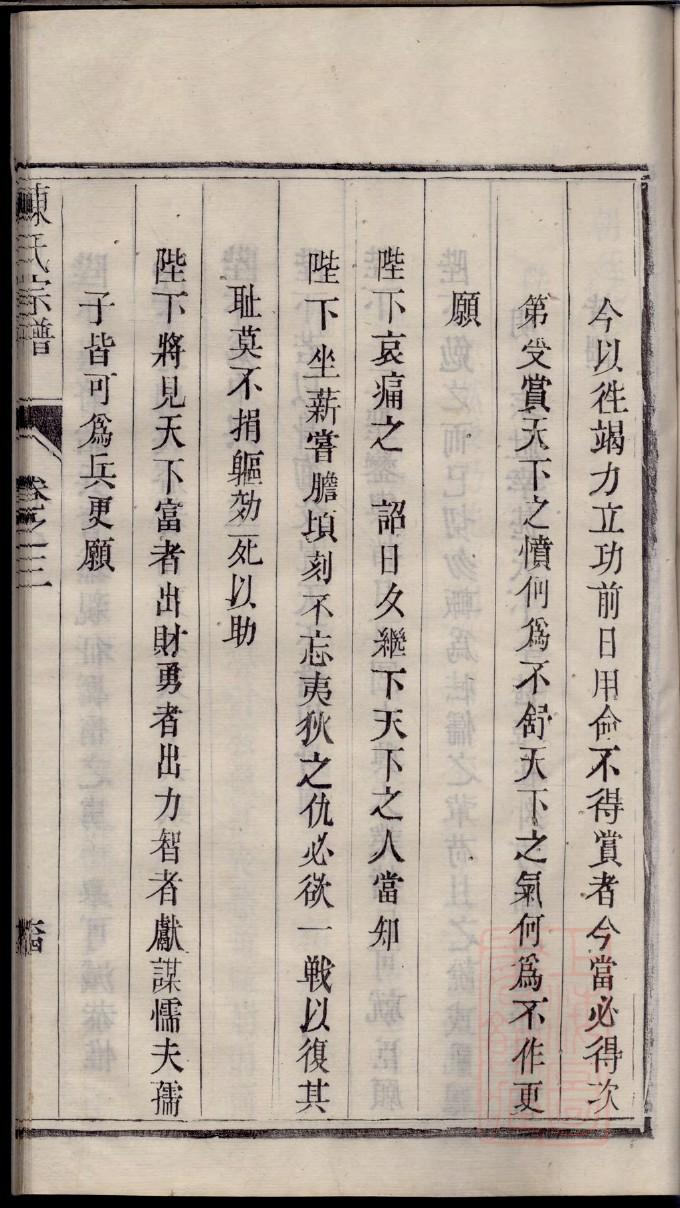 今以徃竭力立功前日用命不得賞者今當必得次
第受賞天下之憤何爲不舒天下之氣何爲不作更
願
陛下哀痛之 詔日夕繼下天下之人當知
陛下坐薪嘗膽頃刻不忘夷狄之仇必欲一戰以復其
耻莫不捐軀効死以助
陛下將見天下富者出財勇者出力智者獻謀懦夫孺
子皆可爲兵更願
陳氏宗譜 卷之三